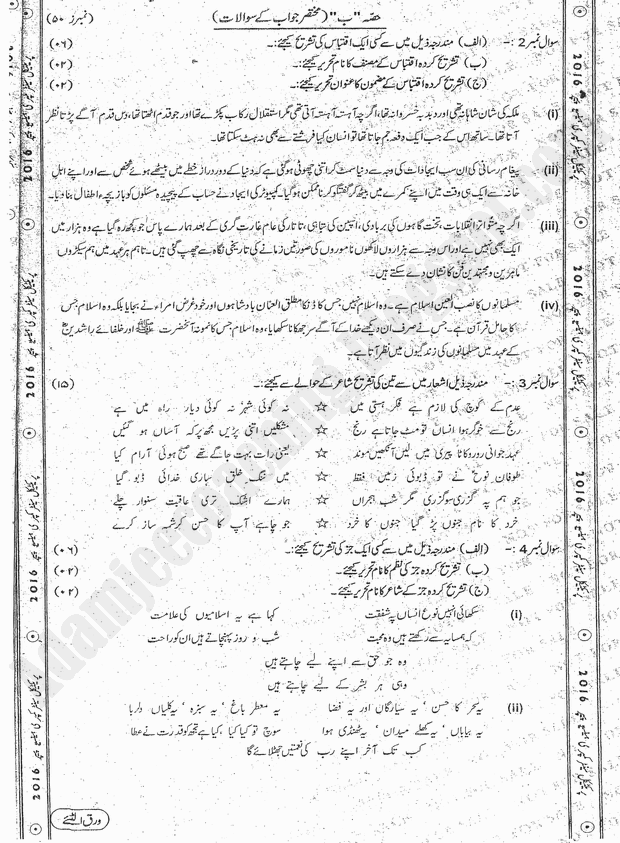 حصہ "ب" (مختصر جواب کے سوالات) (نمبرز ۵۰)
سوال نمبر 2 :- (الف) مندرجہ ذیل میں سے کسی ایک اقتباس کی تشریح کیجئے:۔ (۰۶)
(ب) تشریح کردہ اقتباس کے مصنف کا نام تحریر کیجئے:۔ (۰۲)
(ج) تشریح کردہ اقتباس کے مضمون کا عنوان تحریر کیجئے:۔ (۰۲)
(i) ملکہ کی شان شاہانہ تھی اور دبدبہ خسروانہ تھا، اگرچہ آہستہ آہستہ آتی تھی مگر استقلال رکاب پکڑے تھا اور جو قدم اٹھتا تھا، دس قدم آگے پڑتا نظر
آتا تھا۔ ساتھ اس کے جب ایک دفعہ جم جاتا تھا تو انسان کیا فرشتے سے بھی نہ ہٹ سکتا تھا۔
(ii) پیغام رسانی کی ان سب ایجادات کی وجہ سے دنیا سمٹ کر اتنی چھوٹی ہوگئی ہے کہ دنیا کے دور دراز خطے میں بیٹھے ہوئے شخص سے اور اپنے اہلِ
خانہ سے ایک ہی وقت میں اپنے کمرے میں بیٹھ کر گفتگو کرنا ممکن ہوگیا۔ کمپیوٹر کی ایجاد نے حساب کے پیچیدہ مسئلوں کو بازیچۂ اطفال بنا دیا۔
(iii) اگرچہ متواتر انقلابات، تخت گاہوں کی بربادی، اسپین کی تباہی، تاتار کی عام غارت گری کے بعد ہمارے پاس جو کچھ رہ گیا ہے وہ ہزار میں
ایک بھی نہیں ہے اور اس وجہ سے ہزاروں لاکھوں ناموروں کی صورتیں زمانے کی تاریخی نگاہ سے چھپ گئی ہیں۔ تاہم ہر عہد میں ہم سیکڑوں
ماہرین و مجتہدین فن کا نشان دے سکتے ہیں۔
(iv) مسلمانوں کا نصب العین اسلام ہے۔ وہ اسلام نہیں جس کا ڈنکا مطلق العنان بادشاہوں اور خود غرض امراء نے بجایا بلکہ وہ اسلام جس
کا حامل قرآن ہے۔ جس نے صرف ان دیکھے خدا کے آگے سر جھکانا سکھایا، وہ اسلام جس کا نمونہ آنحضرت ﷺ اور خلفائے راشدین
کے عہد میں مسلمانوں کی زندگیوں میں نظر آتا ہے۔
سوال نمبر 3 :- مندرجہ ذیل اشعار میں سے تین کی تشریح شاعر کے حوالے سے کیجئے:۔ (۱۵)
عدم کے کوچ کی لازم ہے فکر ہستی میں ☆ نہ کوئی شہر نہ کوئی دیار راہ میں ہے
رنج سے خوگر ہوا انساں تو مٹ جاتا ہے رنج ☆ مشکلیں اتنی پڑیں مجھ پر کہ آساں ہو گئیں
عہد جوانی رو رو کاٹا پیری میں لیں آنکھیں موند ☆ یعنی رات بہت جاگے تھے صبح ہوئی آرام کیا
طوفانِ نوح نے تو ڈبوئی زمیں فقط ☆ میں ننگِ خلق ساری خدائی ڈبو گیا
جو ہم پہ گزری سو گزری مگر شبِ ہجراں ☆ ہمارے اشک تری عاقبت سنوار چلے
خرد کا نام جنوں پڑ گیا جنوں کا خرد ☆ جو چاہے آپ کا حسن کرشمہ ساز کرے
سوال نمبر 4 :- (الف) مندرجہ ذیل میں سے کسی ایک جز کی تشریح کیجئے:۔ (۰۶)
(ب) تشریح کردہ جز کے نظم کا نام تحریر کیجئے:۔ (۰۲)
(ج) تشریح کردہ جز کے شاعر کا نام تحریر کیجئے:۔ (۰۲)
(i) سکھائی انہیں نوع انساں پہ شفقت کہا ہے یہ اسلامیوں کی علامت
کہ ہمسایہ سے رکھتے ہیں وہ محبت شب و روز پہنچاتے ہیں ان کو راحت
وہ جو حق سے اپنے لیے چاہتے ہیں
وہی ہر بشر کے لیے چاہتے ہیں
(ii) یہ سحر کا حسن، یہ سیارگاں اور یہ فضا یہ معطر باغ، یہ سبزہ، یہ کلیاں دلربا
یہ بیاباں، یہ کھلے میدان، یہ ٹھنڈی ہوا سوچ تو کیا کیا، کیا ہے تجھ کو قدرت نے عطا
کب تک آخر اپنے رب کی نعمتیں جھٹلائے گا
ورق الٹئے